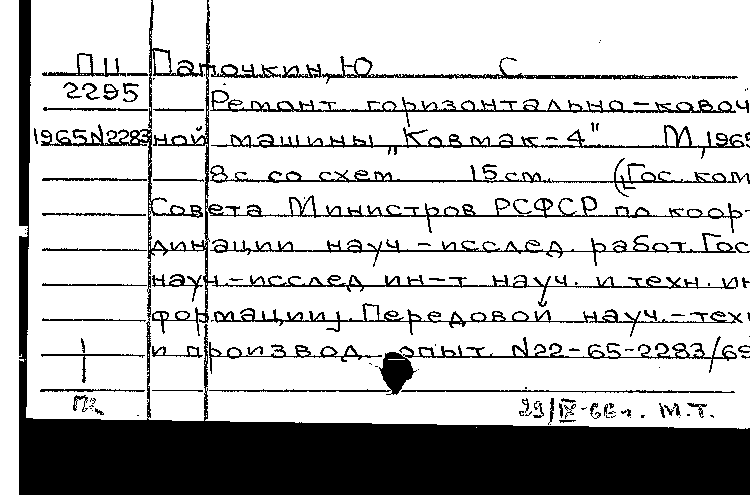 П11 Папочкин, Ю С
2295 Ремонт горизонтально-ковоч
1965N2283 ной машины „Ковмак-4" М, 1965
8с со схем. 15 см. (Гос. ком
Совета Министров РСФСР по коор-
динации науч-исслед. работ. Гос
науч-исслед ин-т науч. и техн. ин
формации). Передовой науч.-техн
и производ. опыт. N22-65-2283/69
29/IX-66г. М.Т.